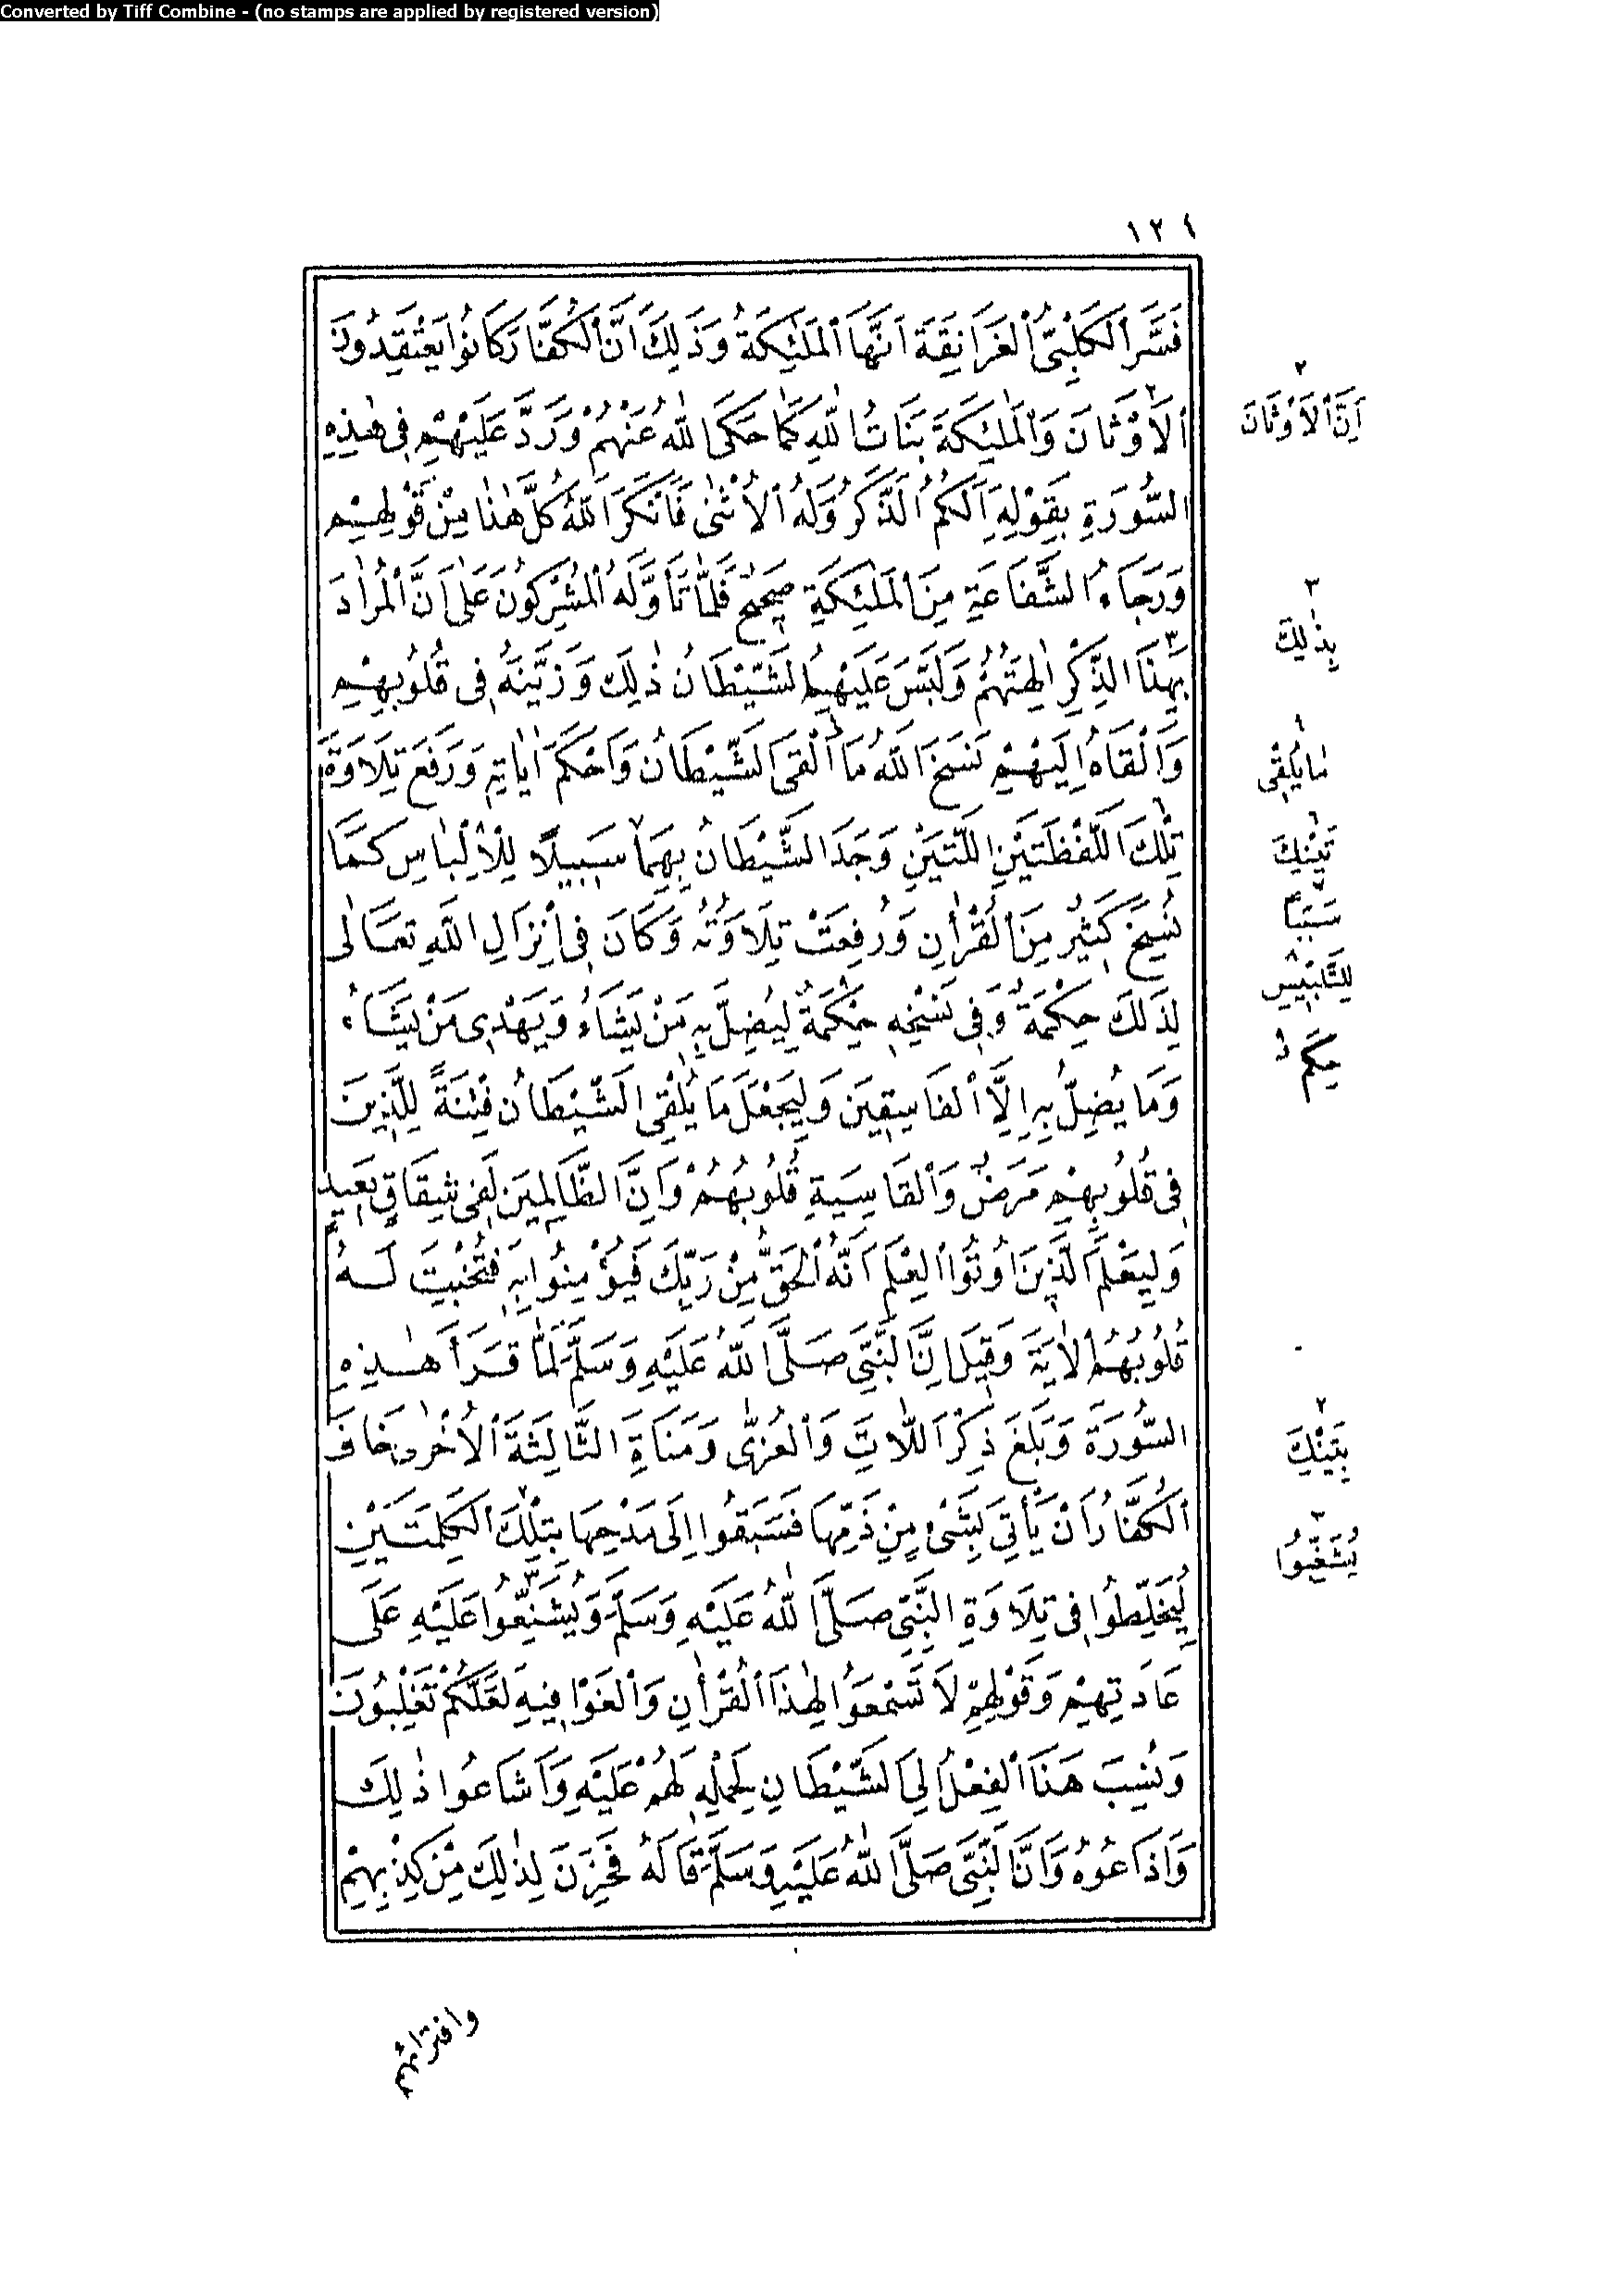 Converted by Tiff Combine - (no stamps are applied by registered version)
١٢٤
فَسَّرَ ٱلْكَلْبِيُّ ٱلْغَرَانِقَةَ اَنَّهَا ٱلْمَلٰئِكَةُ وَذَلِكَ اَنَّ ٱلْكُفَّارَ كَانُوا يَعْتَقِدُونَ
ٱلْاَوْثَانَ وَٱلْمَلٰئِكَةَ بَنَاتُ اللّٰهِ كَمَا حَكَى اللّٰهُ عَنْهُمْ وَرَدَّ عَلَيْهِمْ فِى هٰذِهِ
السُّورَةِ بِقَوْلِهِ اَلَكُمُ ٱلذَّكَرُ وَلَهُ ٱلْاُنْثٰى فَاَنْكَرَ اللّٰهُ كُلَّ هٰذَا مِنْ قَوْلِهِمْ
وَرَجَاءُ الشَّفَاعَةِ مِنَ ٱلْمَلٰئِكَةِ صَحِيحٌ فَلَمَّا تَأَوَّلَهُ ٱلْمُشْرِكُونَ عَلٰى اَنَّ ٱلْمُرَادَ
بِهٰذَا الذِّكْرِ اٰلِهَتُهُمْ وَلَبَّسَ عَلَيْهِمُ الشَّيْطَانُ ذٰلِكَ وَزَيَّنَهُ فِى قُلُوبِهِمْ
وَاَلْقَاهُ اِلَيْهِمْ نَسَخَ اللّٰهُ مَا اَلْقَى الشَّيْطَانُ وَاَحْكَمَ اٰيَاتِهِ وَرَفَعَ تِلَاوَةَ
تِلْكَ اللَّفْظَتَيْنِ اللَّتَيْنِ وَجَدَ الشَّيْطَانُ بِهِمَا سَبِيلًا لِلْاِلْبَاسِ كَمَا
نُسِخَ كَثِيرٌ مِنَ الْقُرْاٰنِ وَرُفِعَتْ تِلَاوَتُهُ وَكَانَ فِى اِنْزَالِ اللّٰهِ تَعَالٰى
لِذَلِكَ حِكْمَةٌ وَفِى نَسْخِهِ حِكْمَةٌ لِيُضِلَّ بِهِ مَنْ يَشَاءُ وَيَهْدِى مَنْ يَشَاءُ
وَمَا يُضِلُّ بِهِ اِلَّا ٱلْفَاسِقِينَ وَلِيَجْعَلَ مَا يُلْقِى الشَّيْطَانُ فِتْنَةً لِلَّذِينَ
فِى قُلُوبِهِمْ مَرَضٌ وَٱلْقَاسِيَةِ قُلُوبُهُمْ وَاِنَّ الظَّالِمِينَ لَفِى شِقَاقٍ بَعِيدٍ
وَلِيَعْلَمَ الَّذِينَ اُوتُوا الْعِلْمَ اَنَّهُ ٱلْحَقُّ مِنْ رَبِّكَ فَيُؤْمِنُوا بِهِ فَتُخْبِتَ لَهُ
قُلُوبُهُمْ الْاٰيَةَ وَقِيلَ اِنَّ النَّبِىَّ صَلَّى اللّٰهُ عَلَيْهِ وَسَلَّمَ لَمَّا قَرَأَ هٰذِهِ
السُّورَةَ وَبَلَغَ ذِكْرَ اللَّاتِ وَٱلْعُزّٰى وَمَنَاةَ الثَّالِثَةَ ٱلْاُخْرٰى خَافَ
ٱلْكُفَّارُ اَنْ يَأْتِىَ بِشَىْءٍ مِنْ ذَمِّهَا فَسَبَقُوا اِلَى مَدْحِهَا بِتِلْكَ ٱلْكَلِمَتَيْنِ
لِيُخَلِّطُوا فِى تِلَاوَةِ النَّبِىِّ صَلَّى اللّٰهُ عَلَيْهِ وَسَلَّمَ وَيُشَنِّعُوا عَلَيْهِ عَلَى
عَادَتِهِمْ وَقَوْلِهِمْ لَا تَسْمَعُوا لِهٰذَا ٱلْقُرْاٰنِ وَٱلْغَوْا فِيهِ لَعَلَّكُمْ تَغْلِبُونَ
وَنُسِبَ هَذَا ٱلْفِعْلُ اِلَى الشَّيْطَانِ لِحَمْلِهِ لَهُمْ عَلَيْهِ وَاَشَاعُوا ذٰلِكَ
وَاَذَاعُوهُ وَاَنَّ النَّبِىَّ صَلَّى اللّٰهُ عَلَيْهِ وَسَلَّمَ قَالَهُ فَحَزِنَ لِذٰلِكَ مِنْ كَذِبِهِمْ
وافترائهم
٢
اَنَّ ٱلْاَوْثَانَ
٣
بِذٰلِكَ
مَا يُلْقِى
تَيْنِكَ
سَبَبًا
لِلتَّلْبِيسِ
حِكَمٌ
٢
بِتَيْنِكَ
٢
يُشَغِّبُوا